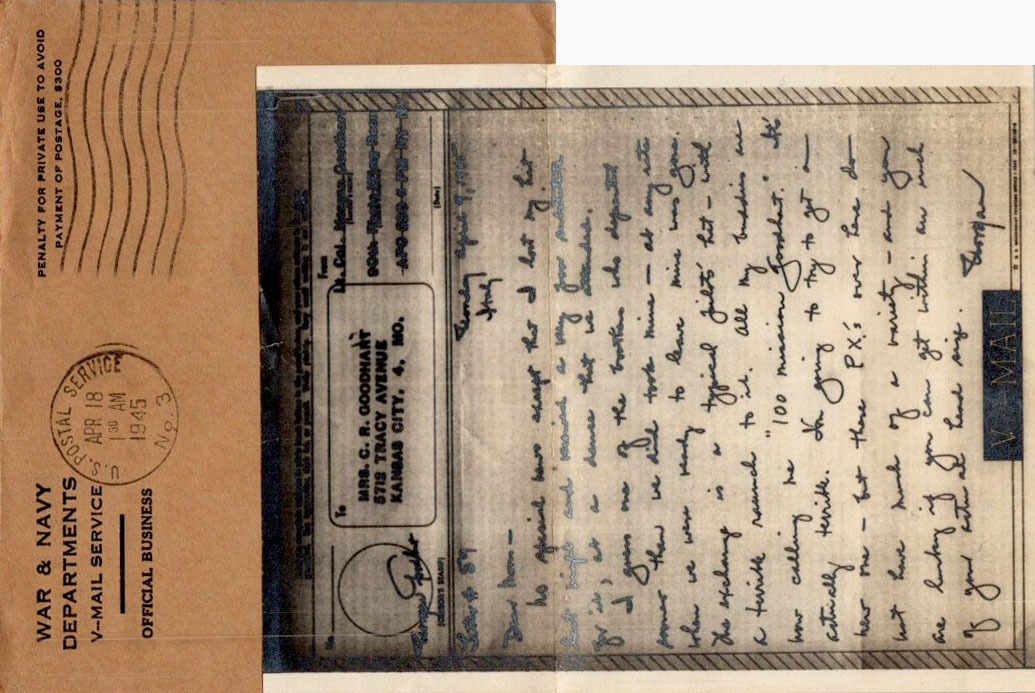 WAR & NAVY
DEPARTMENTS
V-MAIL SERVICE
OFFICIAL BUSINESS
U.S. POSTAL SERVICE
APR 18
1 30 AM
1945
No. 3
PENALTY FOR PRIVATE USE TO AVOID
PAYMENT OF POSTAGE, $300
No.
To
MRS. C. R. GOODHART
5712 TRACY AVENUE
KANSAS CITY, 4, MO.
From
Lt. Col.
(CENSOR'S STAMP)
(Date)
Letter # 59
April 9, 1945
Italy
Dear Mom—
No special news except that I lost my hat
last night and received a very poor substitute
for it, at a dance that we attended.
I guess one of the brothers who departed
sooner than we did took mine — at any rate
when we were ready to leave mine was gone.
The exchange is a typical pilots' hat — with
a terrible raunch to it. All my buddies are
now calling me "100 mission Goodhart." It's
actually terrible. I'm going to try to get a
new one — but these P.X.'s over here do
not have much of a variety — and you
are lucky if you can get within an inch
of your actual head size.
Morgan
V - MAIL